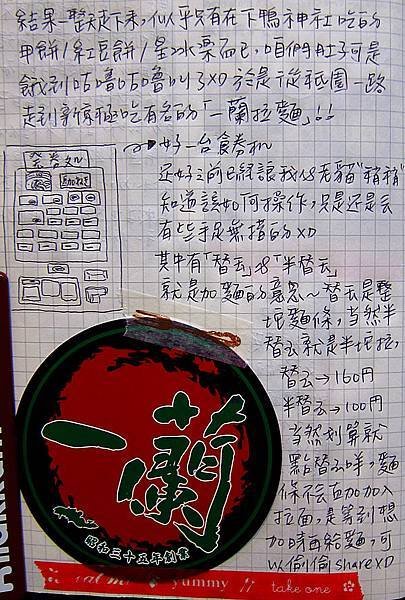 結果一整天走下來，似乎只有在下鴨神社吃的
甲餅/紅豆餅/星冰樂而已，咱們肚子可是
餓到咕嚕咕嚕叫了XD 於是從祇園一路
走到新京極吃有名的「一蘭拉麵」!!
好一台食券机
还好之前已經讓我倆老貓"稍稍"
知道該如何操作，只是还是会
有些手足無措的XD
其中有「替玉」&「半替玉」
就是加麵的意思～替玉是整
塊麵條，当然半
替玉就是半塊拉，
替玉→160円
半替玉→100円
当然划算就
點替玉咩，麵
條不会直加加入
拉面，是等到想
加時再給麵，可
以偷偷shareXD
一蘭
昭和三十五年創業
eat me yummy !! take one